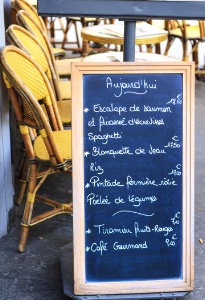 Aujourd'hui
* Escalope de saumon
et fricassé d'écrevisses
Spaghetti
* Blanquette de Veau
Riz
* Pintade fermière rôtie
Poêlée de légumes
* Tiramisu fruits-Rouges
* Café Gourmand